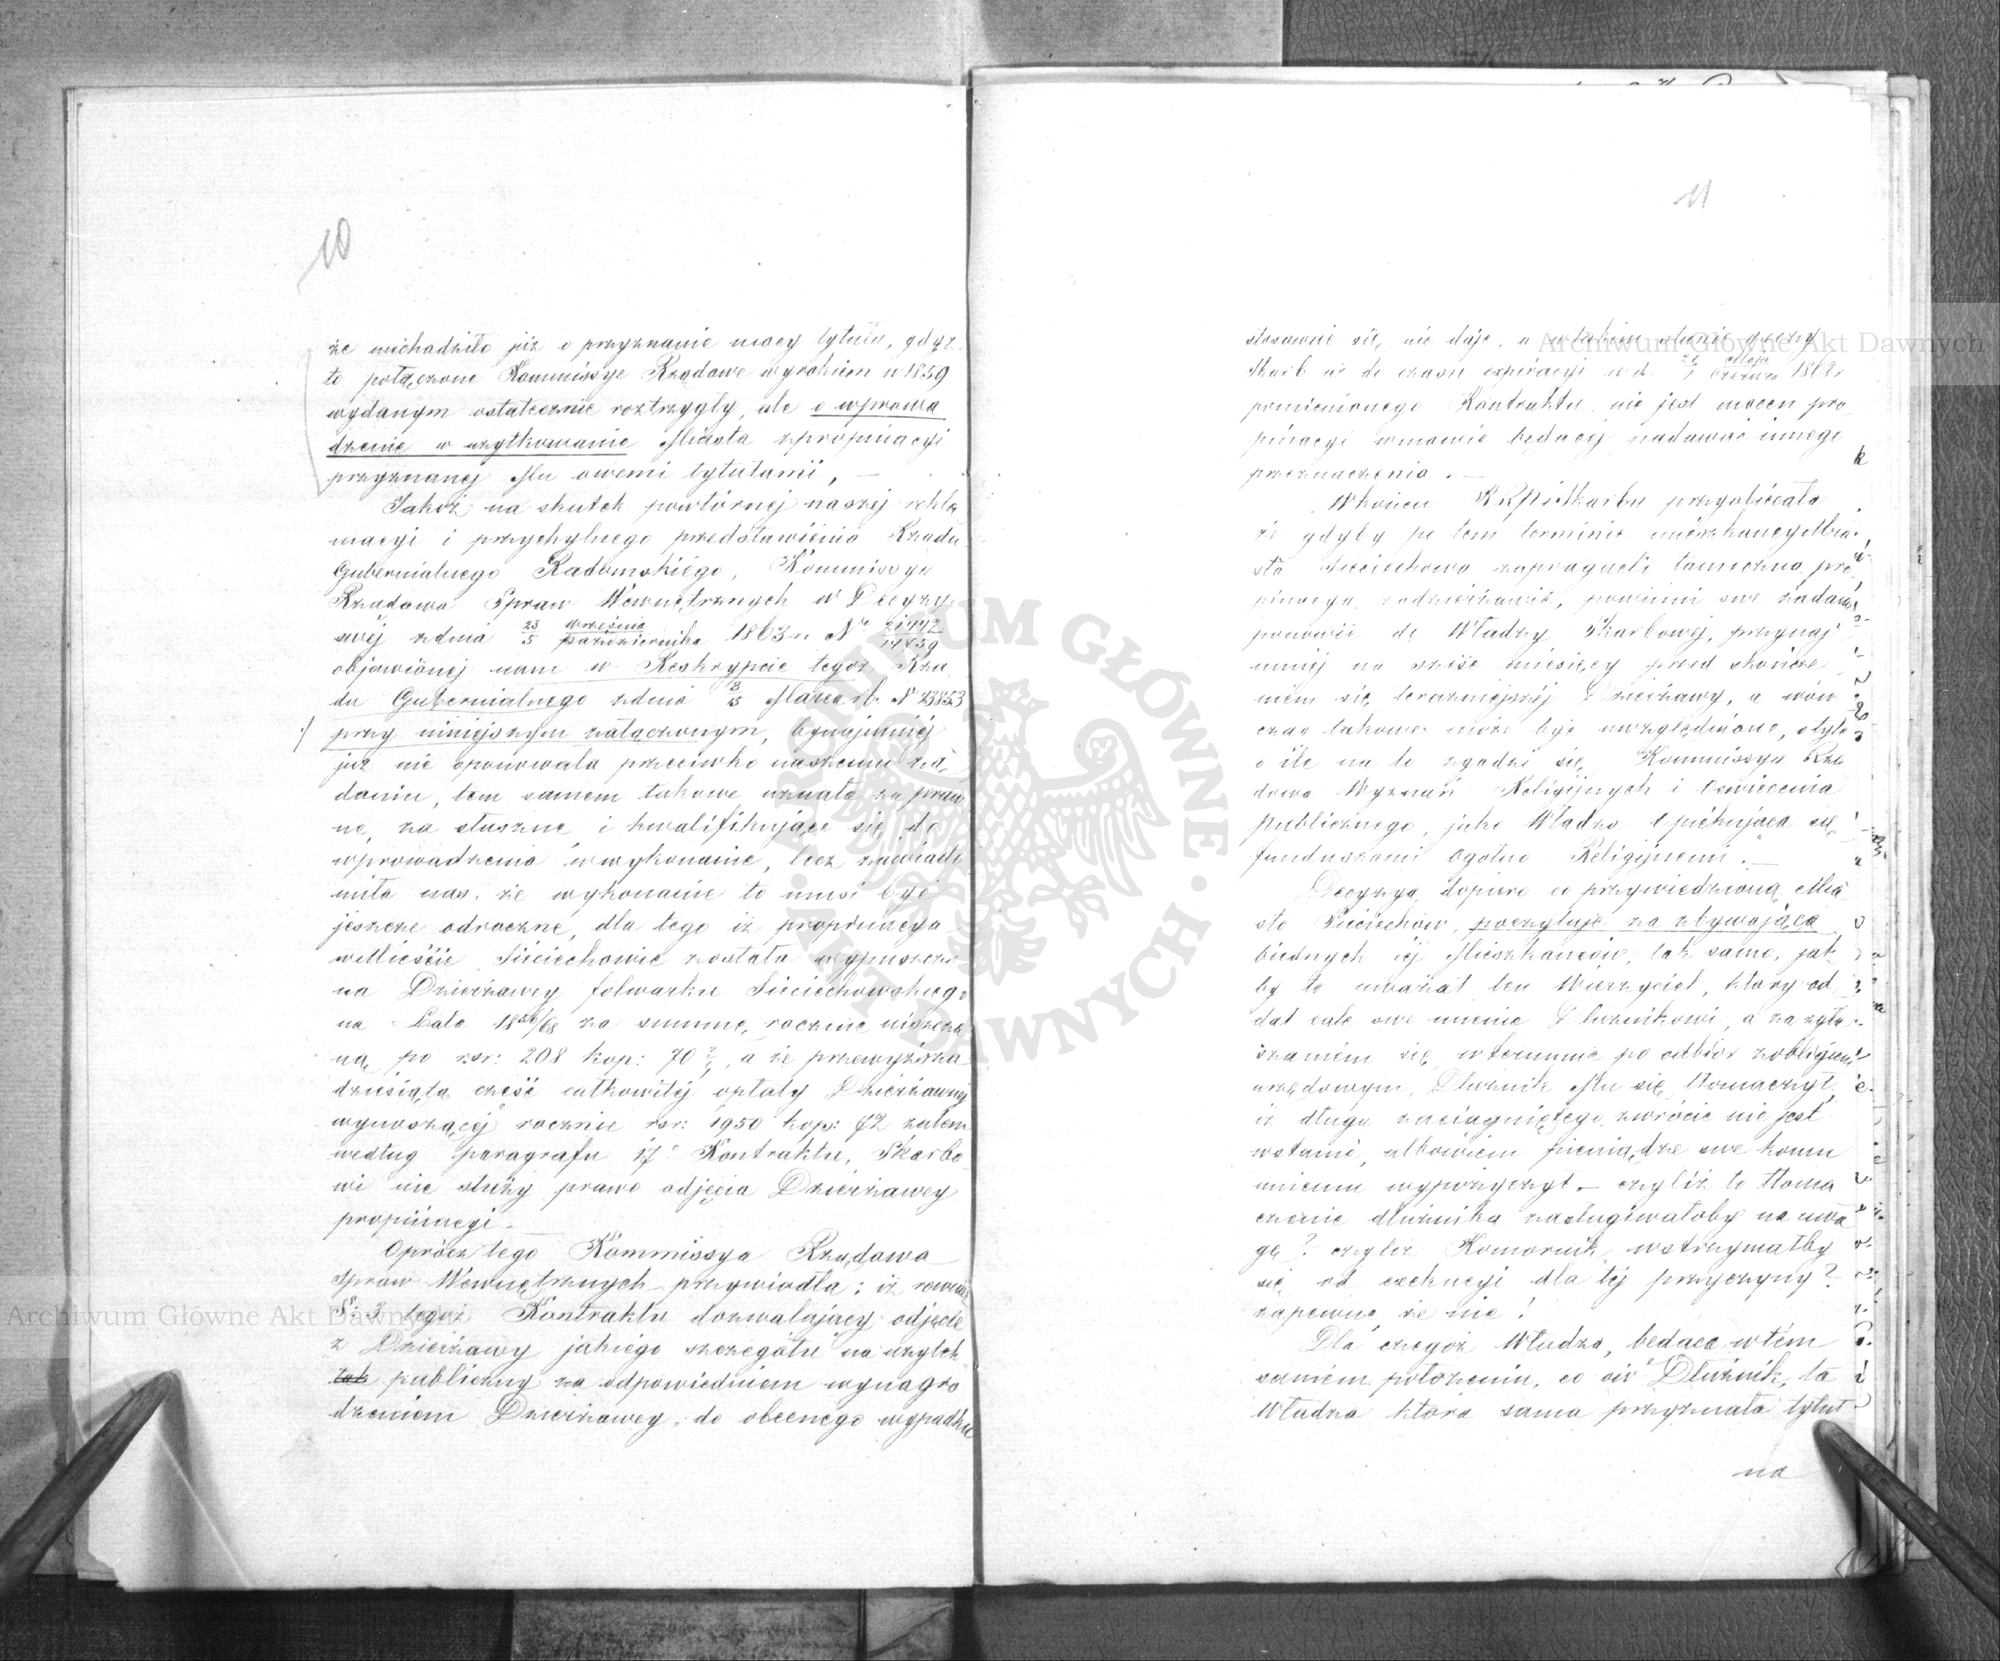 10
że niechodziło już o przyznanie mocy tytułu, gdyż
te połączone Kommissye Rządowe wyrokiem w 1859
wydanym ostatecznie roztrzygły, ale o wprowa
dzenie w użytkowanie Miasta z propinacyi
przyznanej Mu owemi tytułami, —
Jakoż na skutek powtórnej naszej rekla
macyi i przychylnego przedstawienia Rządu
Gubernialnego Radomskiego, Kommissya
Rządowa Spraw Wewnętrznych w Decyzyi
swej z dnia 23/5 Września/Października 1863 r. N°
objawionej nam w Reskrypcie tegoż Rzą
du Gubernialnego z dnia 3/15 Marca rb. N° 23853
przy niniejszym załączonym, bynajmniej
już nie oponowała przeciwko naszemu żą
daniu, tem samem takowe uznała za praw
ne, za słuszne, i kwalifikujące się do
wprowadzenia w wykonanie, lecz zawiado
miła nas, że wykonanie to musi być
jeszcze odroczne, dla tego iż propinacya
w Mieście Sieciechowie została wypuszczo
na Dzierżawcy folwarku Sieciechowskiego
na Lata 1856/68 za summę, rocznie niszczo
ną, po rsr: 208 kop: 70 ½, a że przewyższa
dziesiątą część całkowitej opłaty Dzierżawnej
wynoszącej rocznie rsr: 1950 kop: 72 zatem
według paragrafu 17° Kontraktu, Skarbo
wi nie służy prawo odjęcia Dzierżawcy
propinacyi. —
Oprócz tego Kommissya Rządowa
Spraw Wewnętrznych przywiodła: iż również
§: 3 tegoż Kontraktu dozwalający odjęcie
z Dzierżawy jakiego szczegółu na użytek
tek publiczny za odpowiedniem wynagro
dzeniem Dzierżawcy, do obecnego wypadku
11
stosować się, nie daje, a w takim stanie rzeczy
Skarb aż do czasu expiracyi w d. Maja/Czerwca 1868 r
pomienionego Kontraktu nie jest mocen pro
pinacyi wmowie będącej nadawać innego
przeznaczenia. —
W końcu KRPiSkarbu przyobiecała
że gdyby po tem terminie mieszkańcy Mia
sta Sieciechowa zapragnęli tameczną pro
pinacyę zadzierżawić, powinni swe żądanie
ponowić do Władzy Skarbowej, przynaj
mniej na sześć miesięcy przed skończe
niem się teraźniejszej Dzierżawy, a wów
czas takowe może być uwzględnione, o tyle
o ile na to zgodzi się Kommissya Rzą
dowa Wyznań Religijnych i Oświecenia
publicznego, jako Władza Opiekująca się
funduszami Ogólno Religijnemi. —
Decyzyą dopiero co przywiedzioną, Mia
sto Sieciechów, poczytuje za zbywającą
biednych jej Mieszkańców, tak samo, jak
by to uważał ten Wierzyciel, który od
dał całe swe mienie Dłużnikowi, a za zgła
szaniem się w terminie po odbiór z obligiem
urzędowym, Dłużnik Mu się tłomaczył,
iż długu zaciągniętego zwrócić nie jest
wstanie, albowiem pieniądze swe komu
innemu wypożyczył — czyliż to tłoma
czenie dłużnika zasługiwałoby na uwa
gę? czyliż Komornik wstrzymałby
się od exekucyi dla tej przyczyny? —
zapewne, że nie!
Dla czegoż Władza, będąca w tém
samém położeniu, co ów Dłużnik, ta
Władza która sama przyznała tytuł
na
Archiwum Główne Akt Dawnych
Archiwum Główne Akt Dawnych
ARCHIWUM GŁÓWNE AKT DAWNYCH